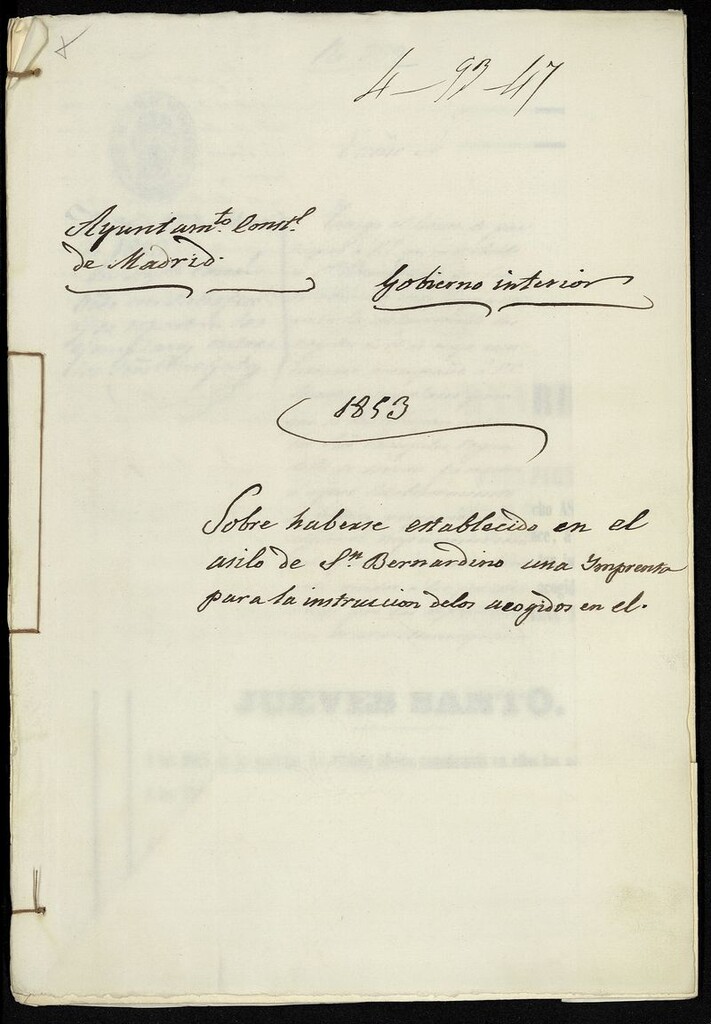 4-93-47
Ayuntamto. Constl.
de Madrid.
Gobierno interior
1853
Sobre haberse establecido en el
asilo de Sn. Bernardino una Imprenta
para la instruccion delos acogidos en el.
JUEVES SANTO.